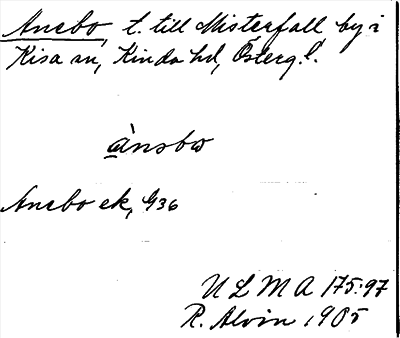 Anebo, t. till Misterfall by i
Kisa sn, Kinda hd, Österg. l.
ànsbω
Anebo ek, G36
ULMA 175:97
R. Alvin 1905